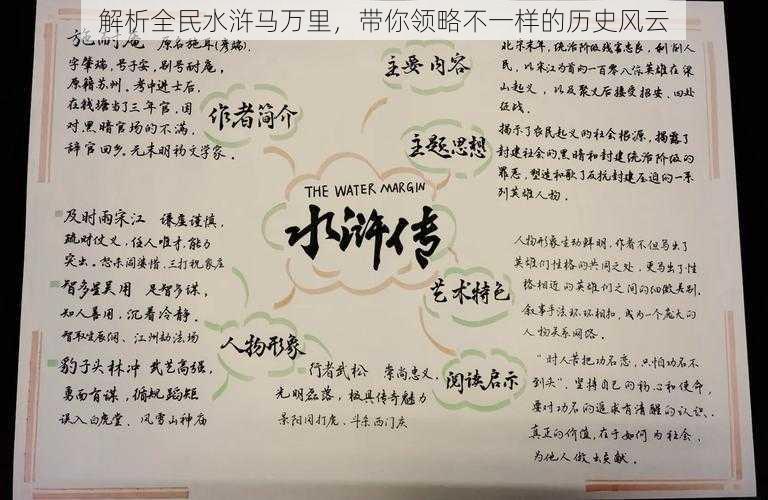 解析全民水浒马万里，带你领略不一样的历史风云
施耐庵 原名施耳(彦端)，
字肇瑞，号子安，别号耐庵，
原籍苏州。考中进士后，
在钱塘当了三年官，因
对黑暗官场的不满，
辞官回乡。元末明初文学家。
作者简介
主要内容
北宋末年，统治阶级残害忠良，
民，以宋江为首的一百零八位英雄在梁
山起义，以及聚义后接受招安、四处
征战。
主题思想
揭示了农民起义的社会根源，揭露了
封建社会的黑暗和封建统治阶级的
罪恶，塑造和歌了反抗封建压迫的一系
列英雄人物。
THE WATER MARGIN
水浒传
及时雨宋江 谦虚谨慎，
疏财仗义，任人唯才，能力
突出。怒杀阎婆惜，三打祝家庄
智多星吴用 足智多谋，
知人善用，沉着冷静。
智取生辰纲、江州劫法场
豹子头林冲 武艺高强，
勇而有谋，循规蹈矩
误入白虎堂、风雪山神庙
人物形象
行者武松 崇尚忠义，
光明磊落，极具传奇魅力
景阳冈打虎、斗杀西门庆
艺术特色
人物形象生动鲜明，作者不但写出了
英雄们性格的共同之处，更写出了性
格相近的英雄们之间的细微差别。
叙事手法环环相扣，成为一个庞大的
人物关系网络。
阅读启示
“时人苦把功名恋，只怕功名不
到头”。坚持自己的初心和使命，
要对功名的追求有清醒的认识，
真正的价值，在于如何为社会，
为他人做出贡献。